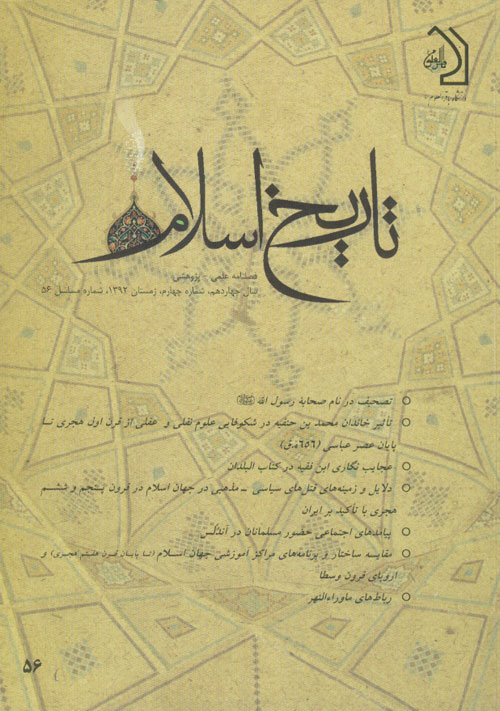 تاریخ اسلام
فصلنامه علمی - پژوهشی
سال چهاردهم، شماره چهارم، زمستان ۱۳۹۲، شماره مسلسل ۵۶
تصحیف در نام صحابهٔ رسول الله ﷺ
تأثیر خاندان محمد بن حنفیه در شکوفایی علوم نقلی و عقلی از قرن اول هجری تا
پایان عصر عباسی (۶۵۶ه‍.ق)
عجایب نگاری ابن فقیه در کتاب البلدان
دلایل و زمینه‌های قتل‌های سیاسی - مذهبی در جهان اسلام در قرون پنجم و ششم
هجری با تأکید بر ایران
پیامدهای اجتماعی حضور مسلمانان در آندلس
مقایسه ساختار و برنامه‌های مراکز آموزشی جهان اسلام (تا پایان قرن هفتم هجری) و
اروپای قرون وسطا
رباط‌های ماوراءالنهر
۵۶